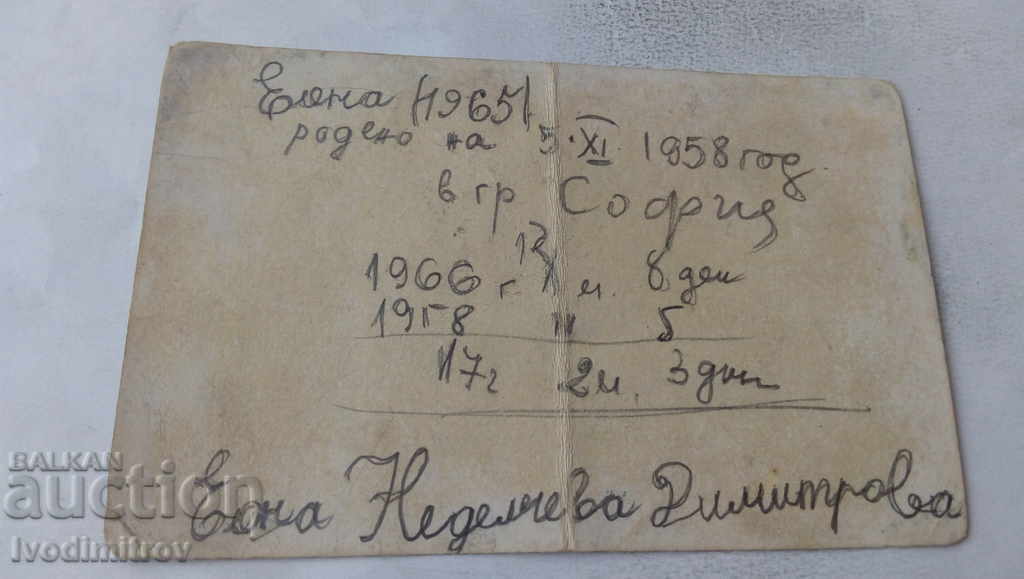 Елена (1965)
родена на 5. XI. 1958 год.
в гр София
1966 г. м. 8 дни
1958 " 5
17г 2м. 3 дни
Елена Неделчева Димитрова
BALKAN
auction
Ivodimitrov